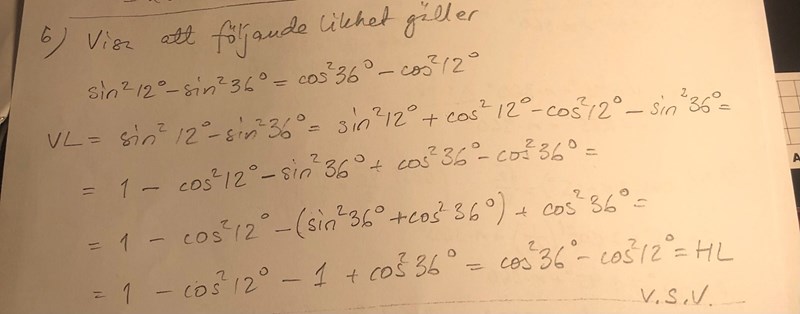 6) Visa att följande likhet gäller
sin²12° - sin²36° = cos²36° - cos²12°
VL = sin²12° - sin²36° = sin²12° + cos²12° - cos²12° - sin²36° =
= 1 - cos²12° - sin²36° + cos²36° - cos²36° =
= 1 - cos²12° - (sin²36° + cos²36°) + cos²36° =
= 1 - cos²12° - 1 + cos²36° = cos²36° - cos²12° = HL
V.S.V.